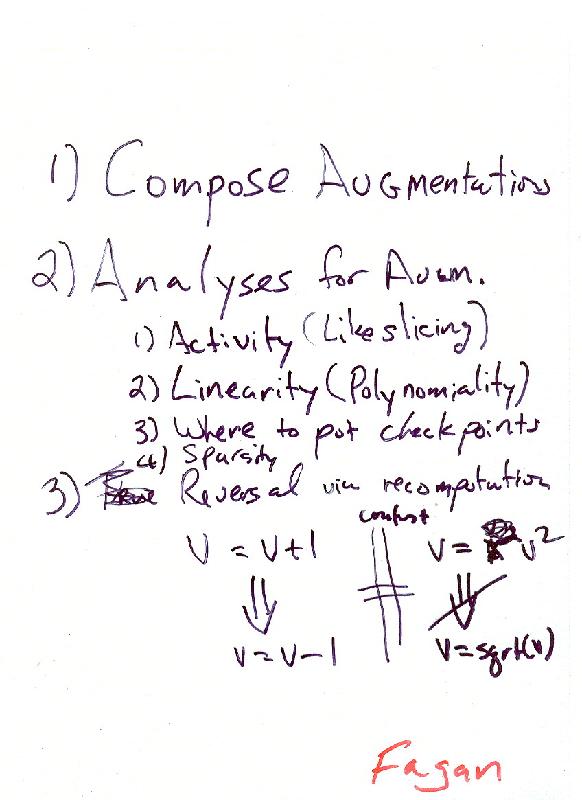 1) Compose Augmentations
2) Analyses for Aum.
1) Activity (Like slicing)
2) Linearity (Polynomiality)
3) Where to put checkpoints
4) Sparsity
3) Reversal via recomputation
contrast
V = V+1 V = V²
V = V-1 V = sqrt(V)
Fagan